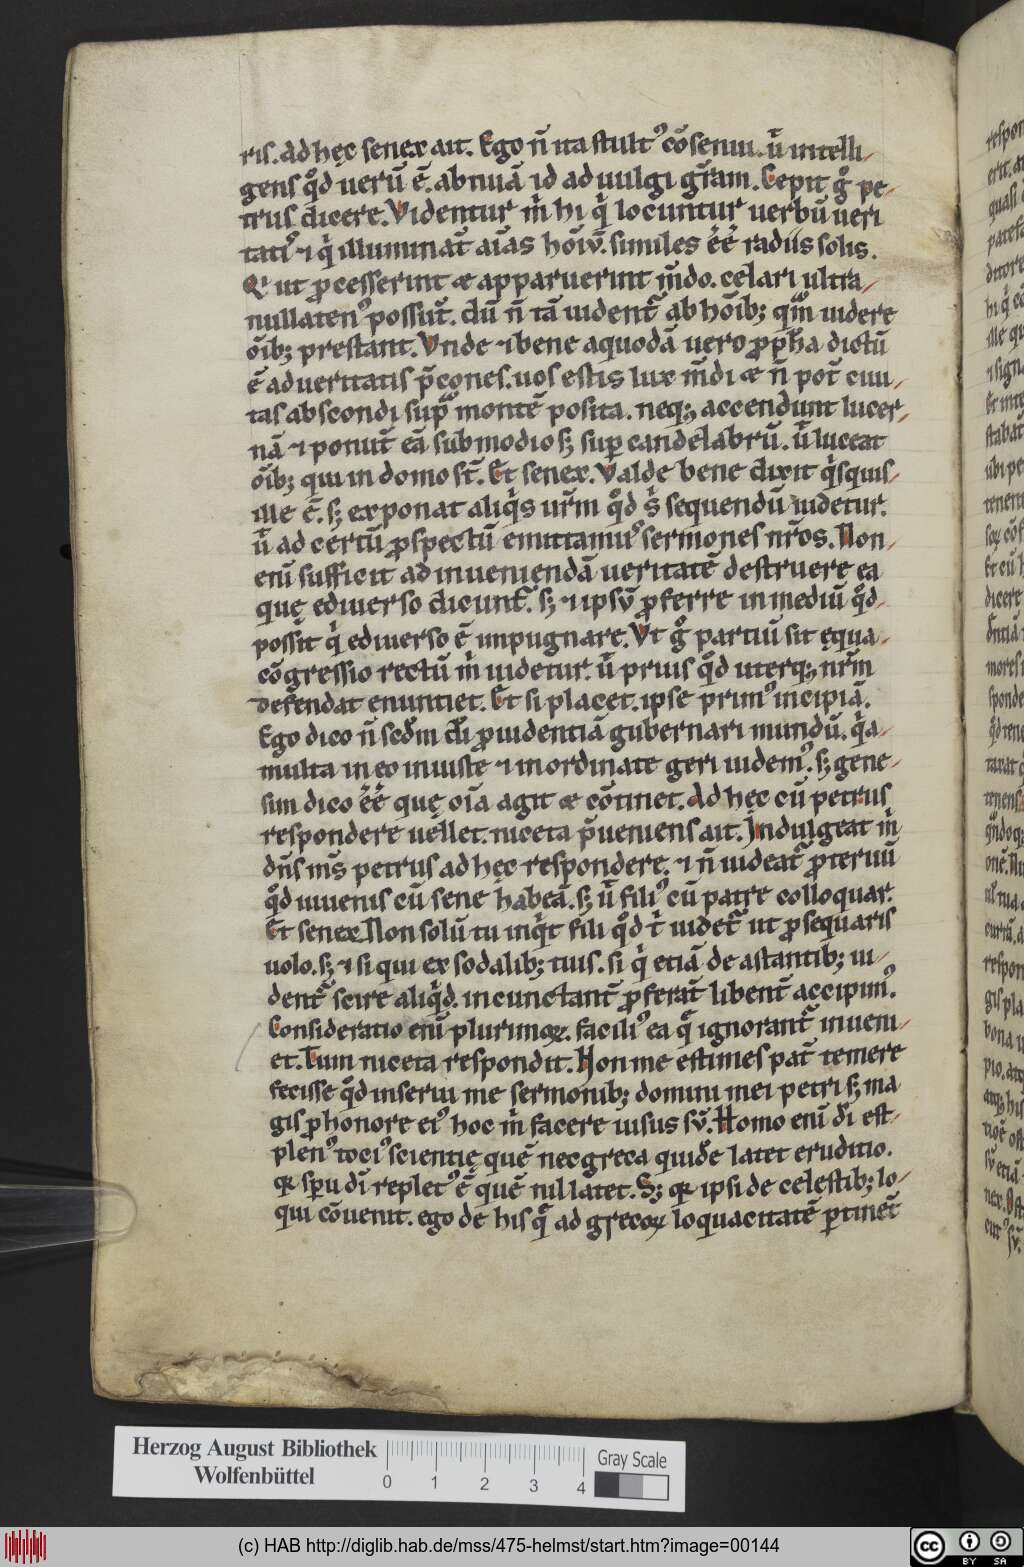 ris. ad hęc senex ait. Ego n̄ ita stultꝰ cōsenui. ut̄ intelli-
gens qͦd uerū ē. abnuā id ad uulgi gr̄am. Cepit gͦ pe-
trus dicere. Videntur m̍ hi q̍ locuntur uerbū ueri
tatiꝰ ⁊ q̍ illuminat̄ aīas hoīū. similes ēē radiis solis.
Q̍ ut ꝓcesserint æ apparuerint m̄do. celari ultra-
nullatenꝰ possut̄. dū n̄ tā uidentᷓ ab hōib; qᷓm uidere
ōib; prestant. Vnde ⁊ bene a quodā uero ꝓpħa dictū
ē ad ueritatis p̄cones. uos estis lux m̄di æ n̄ pot̄ ciui-
tas abscondi supᷓ montē posita. neq; accendunt lucer-
nā ⁊ ponut̄ eā sub modio s; sup candelabrū. ut̄ luceat
ōib; qui in domo st̄. Et senex. Valde bene dixit q̍squis-
ille ē. s; exponat aliq̍s ur̄m qͦd s̍ sequendū uidetur.
ut̄ ad certū ꝓspectū emittamuꝰ sermones nr̄os. Non-
enī sufficit ad inueniendā ueritatē destruere ea
quę ediuerso dicunt̄. s; ⁊ ipsū ꝓferre in mediū qͦd-
possit q̍ ediuerso ē impugnare. Vt gͦ partiū sit ęqua-
cōgressio rectū m̍ uidetur. ut̄ prius qͦd uterq; nr̄m
defendat enuntiet. Et si placet. ipse primꝰ incipiā.
Ego dico n̄ scd̄m di̅ ꝓuidentiā gubernari mundū. q̍a-
multa in eo iniuste ⁊ inordinate geri uidemꝰ. s; gene-
sim dico ēē quę oīa agit æ cōtinet. Ad hęc cū petrus
respondere uellet. niceta p̄ueniens ait. Indulgeat m̍
dn̄s ms̄ petrus ad hęc respondere. ⁊ n̄ uideatᷓ ꝓteruū
qͦd iuuenis cū sene habeā. s; ut̄ filiꝰ cū patre colloquar.
Et senex. Non solū tu inq̍t fili qͦd t̍ uidetᷓ ut ꝓsequaris
uolo. s; ⁊ si qui ex sodalib; tuis. si q̍ etiā de astantib; ui-
dentᷓ scire aliq̍d. incunctant̄ ꝓferat̄ libent̄ accipimꝰ.
Consideratio enī plurimoꝝ. faciliꝰ ea qᷓ ignorantᷓ inueni-
et. Tum niceta respondit. Non me estimes pat̄ temere
fecisse qͦd inserui me sermonib; domini mei petri s; ma
gis ꝓ honore eiꝰ hoc m̍ facere uisus sū. Homo enī di̅ est-
plenꝰ tociꝰ scientię quē nec greca quidē latet eruditio.
qꝛ spu dī repletꝰ ē quē nil latet. S; qꝛ ipsi de celestib; lo-
qui cōuenit. ego de his qᷓ ad grecoꝝ loquacitatē ptinēt
Herzog August Bibliothek
Wolfenbüttel
0 1 2 3 4
Gray Scale
(c) HAB http://diglib.hab.de/mss/475-helmst/start.htm?image=00144
cc BY SA